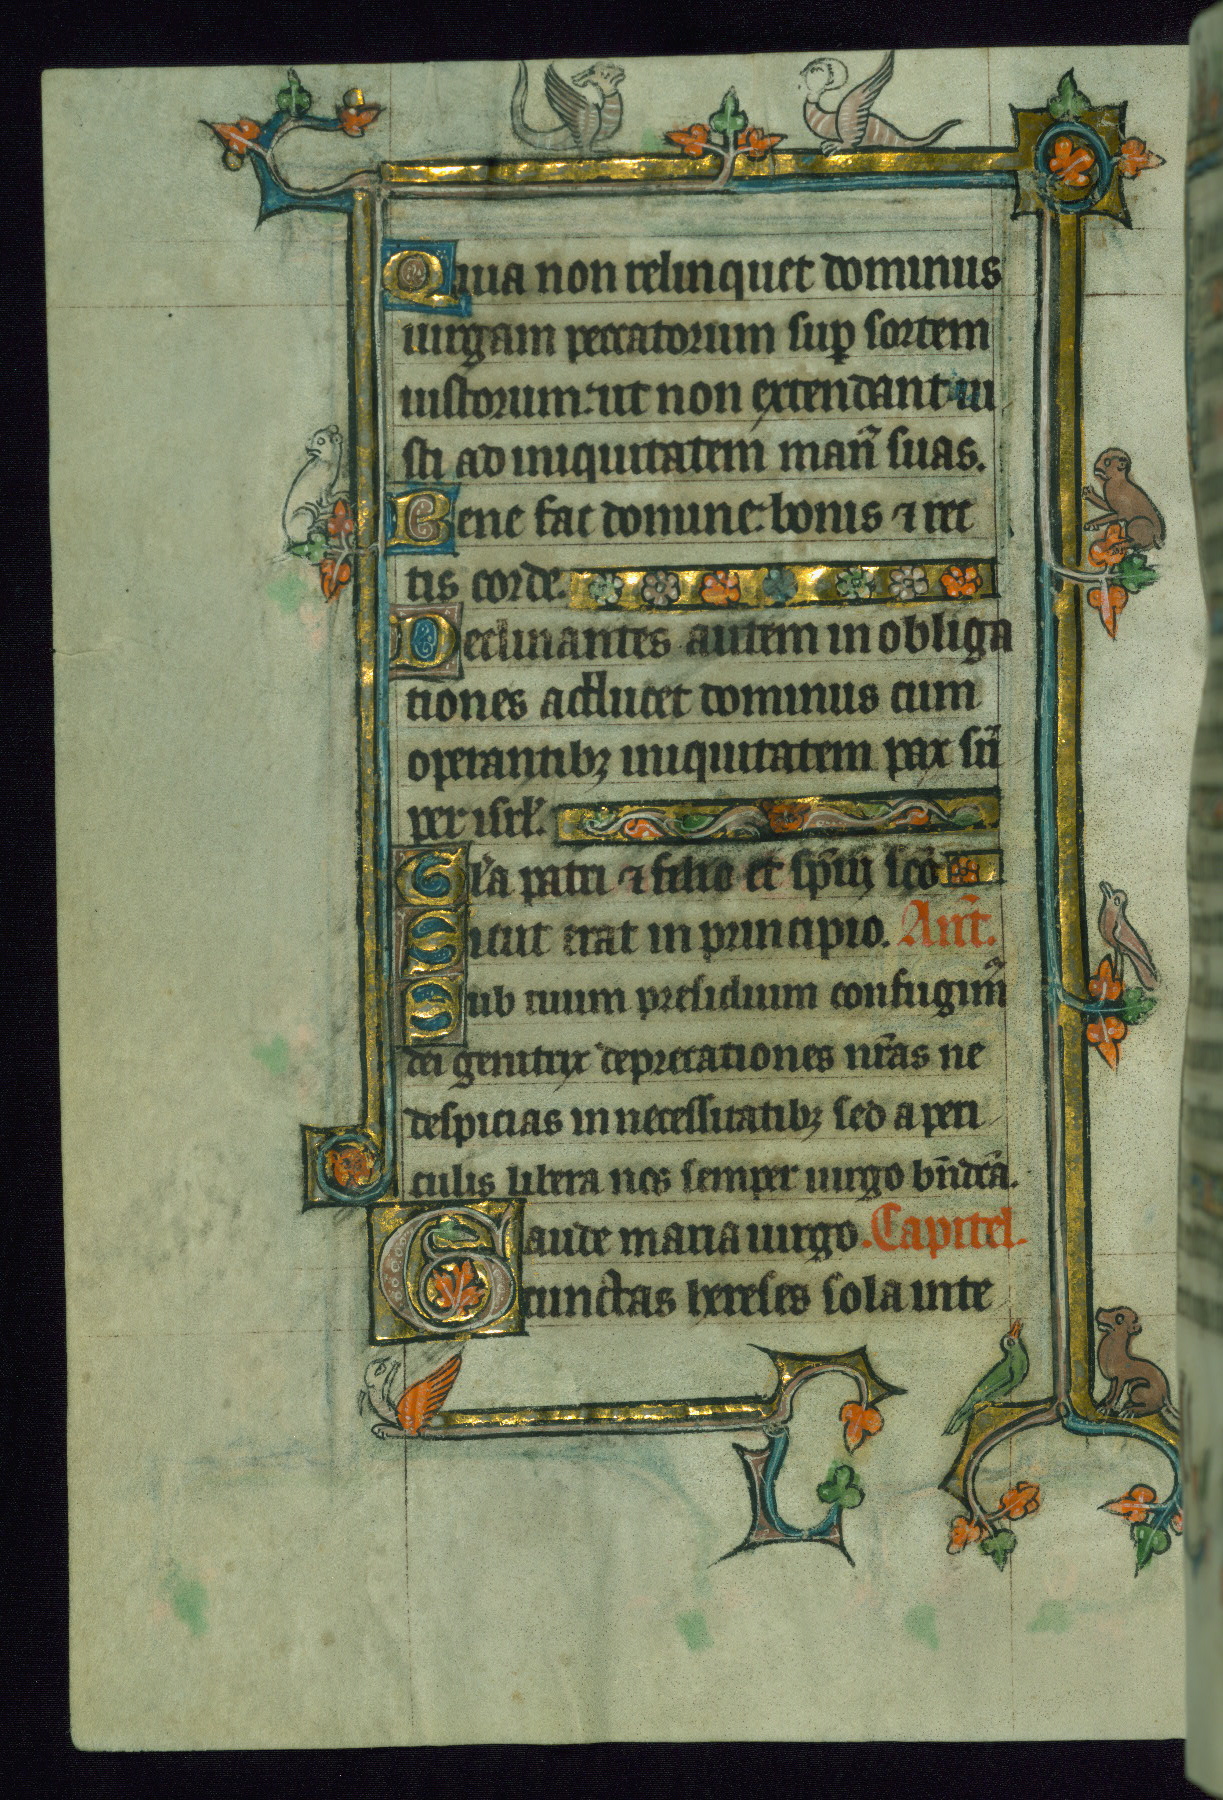 Quia non relinquet dominus
uirgam peccatorum sup sortem
iustorum: ut non extendant iu
sti ad iniquitatem man᷑ suas.
Bene fac domine: bonis ⁊ rec
tis corde.
Declinantes autem in obliga
tiones adducet dominus cum
operantibꝫ iniquitatem pax sū
per isrl'.
Gl'a patri ⁊ filio et sp̄iı sc̄o
Sicut erat in principio. Ant̄.
Sub tuum presidium confugim᷑
dei genitrix deprecationes nr̄as ne
despicias in necessitatibꝫ sed a peri
culis libera nos semper uirgo bn̄dc̄a.
Gaude maria uirgo. Capitel.
cunctas hereses sola inte